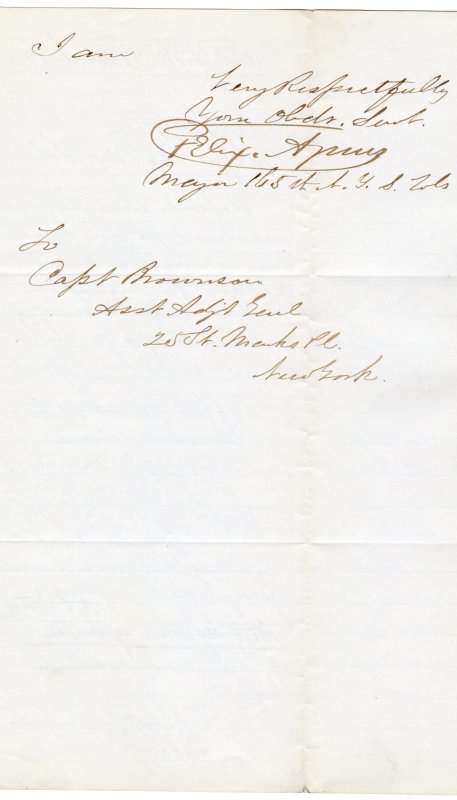 I am
Very Respectfully
Your Obdt. Servt.
Felix Agnus
Major 165th N. Y. S. Vols
To
Capt Brownson
Asst Adjt Genl
25 St. Marks Pl.
New York.